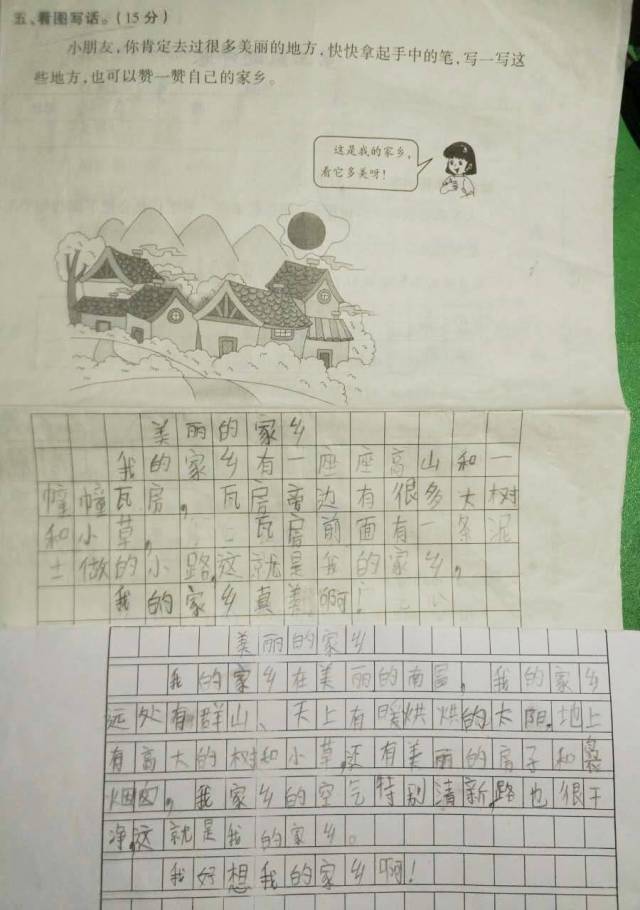 五、看图写话。(15分)
小朋友,你肯定去过很多美丽的地方,快快拿起手中的笔,写一写这
些地方,也可以赞一赞自己的家乡。
这是我的家乡,
看它多美呀!
美丽的家乡
我的家乡有一座座高山和一
幢幢瓦房,瓦房旁边有很多大树
和小草,瓦房前面有一条泥
土做的小路,这就是我的家乡,
我的家乡真美啊!
美丽的家乡
我的家乡在美丽的南昌,我的家乡
远处有群山、天上有暖烘烘的太阳,地上
有高大的树和小草,还有美丽的房子和
烟囱,我家乡的空气特别清新,路也很干
净,这就是我的家乡。
我好想我的家乡啊!